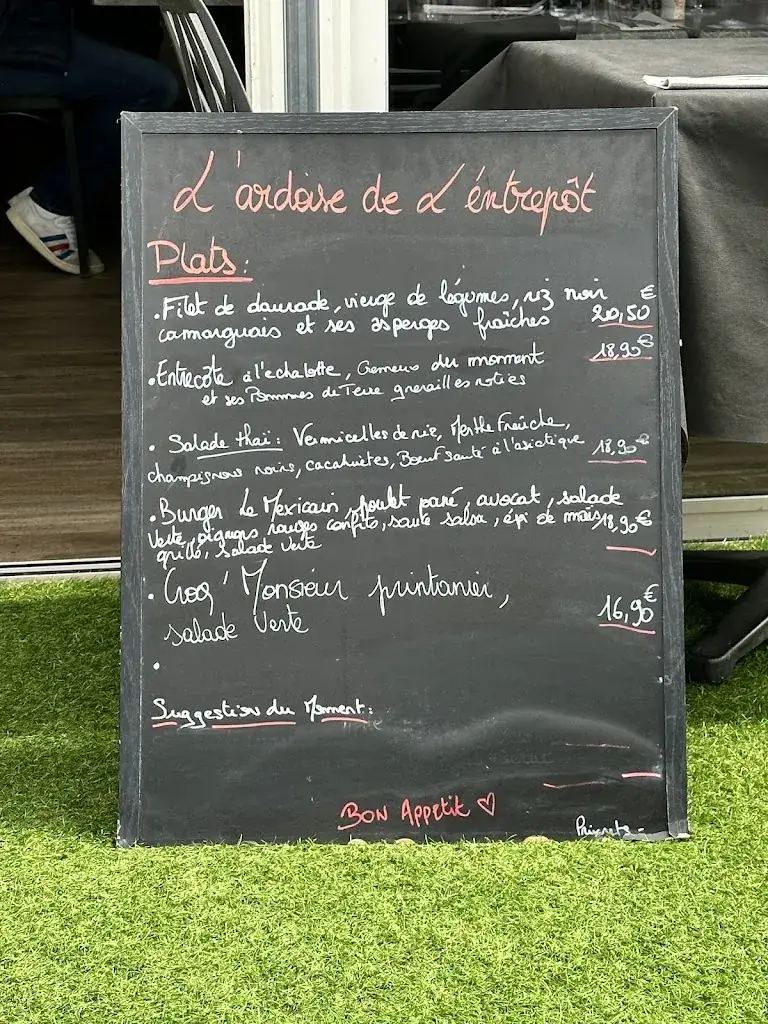 L'ardoise de L'éntrepôt
Plats:
.Filet de daurade, vierge de légumes, riz noir €
camarguais et ses asperges fraîches 20,50
18,90€
.Entrecôte à l'echalotte, Cremeux du moment
et ses Pommes de Terre grenailles roties
. Salade thaï: Vermicelles de riz, Menthe Fraîche,
champignons noirs, cacahuètes, Boeuf sauté à l'asiatique 18,90€
.Burger Le Mexicain, poulet pané, avocat, salade
verte, oignons rouges confits, sauce salsa, épi de maïs 18,90€
grillé, Salade Verte
. Croq' Monsieur printanier, €
salade Verte 16,90
.
Suggestion du Moment:
BON Appetit ♡